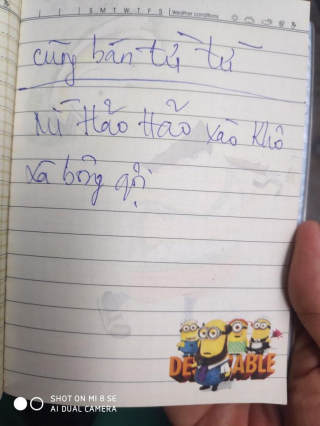 S M T W T F S Weather conditions
cũng bán từ từ
Mì Hảo Hảo xào khô
xà bông
DE ABLE
SHOT ON MI 8 SE
AI DUAL CAMERA